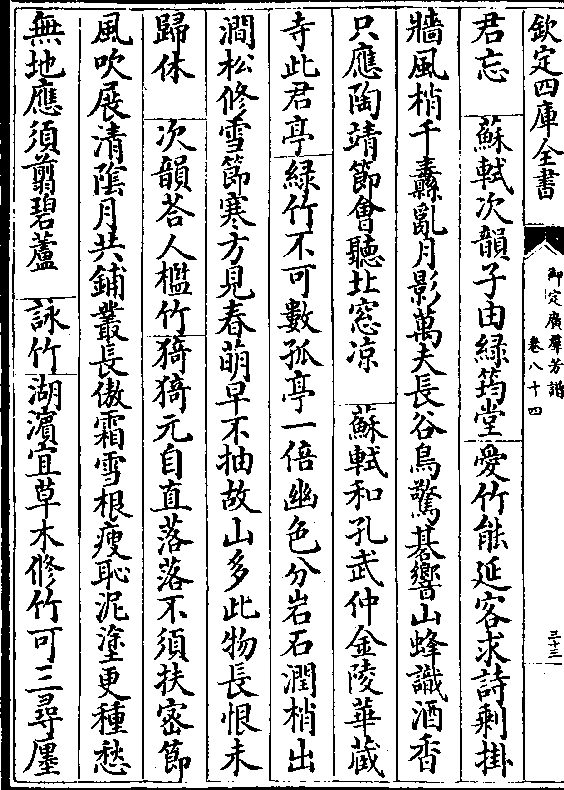 欽定四庫全書
御定廣羣芳譜
卷八十四
三十三
君忘　蘇軾次韻子由綠筠堂愛竹能延客求詩剩掛
牆風梢千纛亂月影萬夫長谷鳥驚棊響山蜂識酒香
只應陶靖節會聽北窓凉　蘇軾和孔武仲金陵華藏
寺此君亭綠竹不可數孤亭一倍幽色分岩石潤梢出
澗松修雪節寒方見春萌早不抽故山多此物長恨未
歸休　次韻荅人檻竹猗猗元自直落落不須扶宻節
風吹展清隂月共鋪叢長傲霜雪根瘦恥泥塗更種愁
無地應須翦碧蘆　詠竹湖濵宜草木修竹可三尋㕓